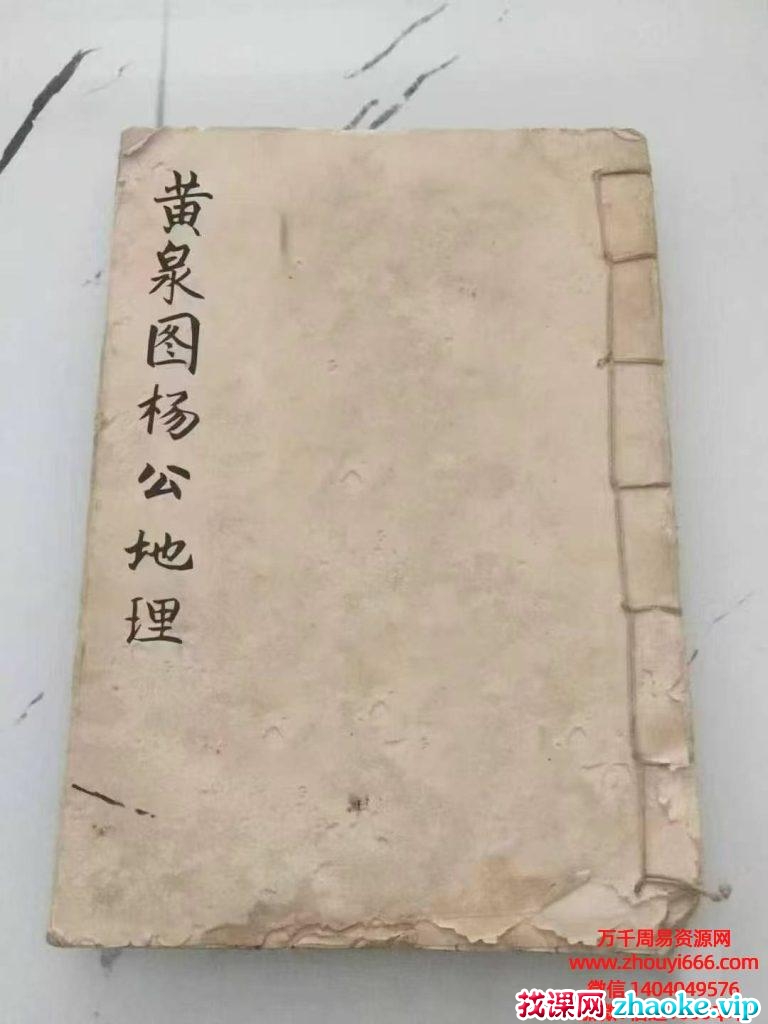 黄泉图杨公地理
万千周易资源网
www.zhouyi666.com
微信 1404049576
找课网zhaoke.vip